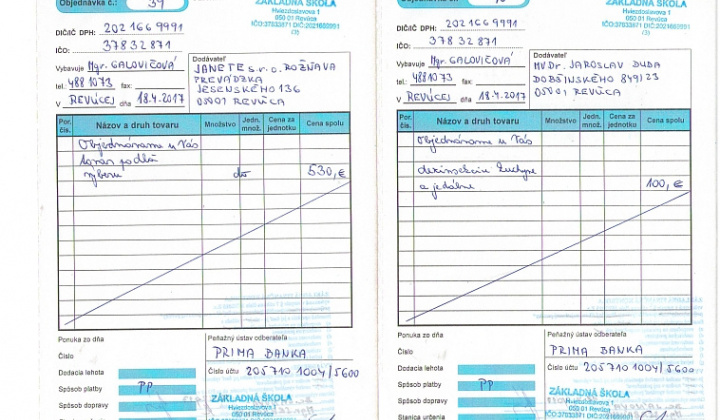 Objednávka č.: 39
ZÁKLADNÁ ŠKOLA
Hviezdoslavova 1
050 01 Revúca
(3)
DIČ/IČ DPH: 202 166 9991
IČO: 378 32 871
Vybavuje Mgr. GALOVIČOVÁ
tel.: 4881073 fax:
V REVÚCEJ dňa 18.4.2017
Dodávateľ
JANETE s.r.o. ROŽŇAVA
PREVÁDZKA
JESENSKÉHO 136
05001 REVÚCA
Por. čís. Názov a druh tovaru Množstvo Jedn. množ. Cena za jednotku Cena spolu
Objednávame u Vás
tovar podľa
výberu do 530,€
Ponuka zo dňa
Číslo
Dodacia lehota
Spôsob platby PP
Spôsob dopravy
Peňažný ústav odberateľa
PRIMA BANKA
Číslo účtu 205710 1004/5600
ZÁKLADNÁ ŠKOLA
Hviezdoslavova 1
050 01 Revúca
Objednávka č.:
ZÁKLADNÁ ŠKOLA
Hviezdoslavova 1
050 01 Revúca
(3)
DIČ/IČ DPH: 202 166 9991
IČO: 378 32 871
Vybavuje Mgr. GALOVIČOVÁ
tel.: 4881073 fax:
V REVÚCEJ dňa 18.4.2017
Dodávateľ
MVDr. JAROSLAV DUDA
DOBŠINSKÉHO 849/23
05001 REVÚCA
Por. čís. Názov a druh tovaru Množstvo Jedn. množ. Cena za jednotku Cena spolu
Objednávame u Vás
dezinsekciu kuchyne
a jedálne 100,€
Ponuka zo dňa
Číslo
Dodacia lehota
Spôsob platby PP
Spôsob dopravy
Stanica určenia
Peňažný ústav odberateľa
PRIMA BANKA
Číslo účtu 205710 1004/5600
ZÁKLADNÁ ŠKOLA
Hviezdoslavova 1
050 01 Revúca